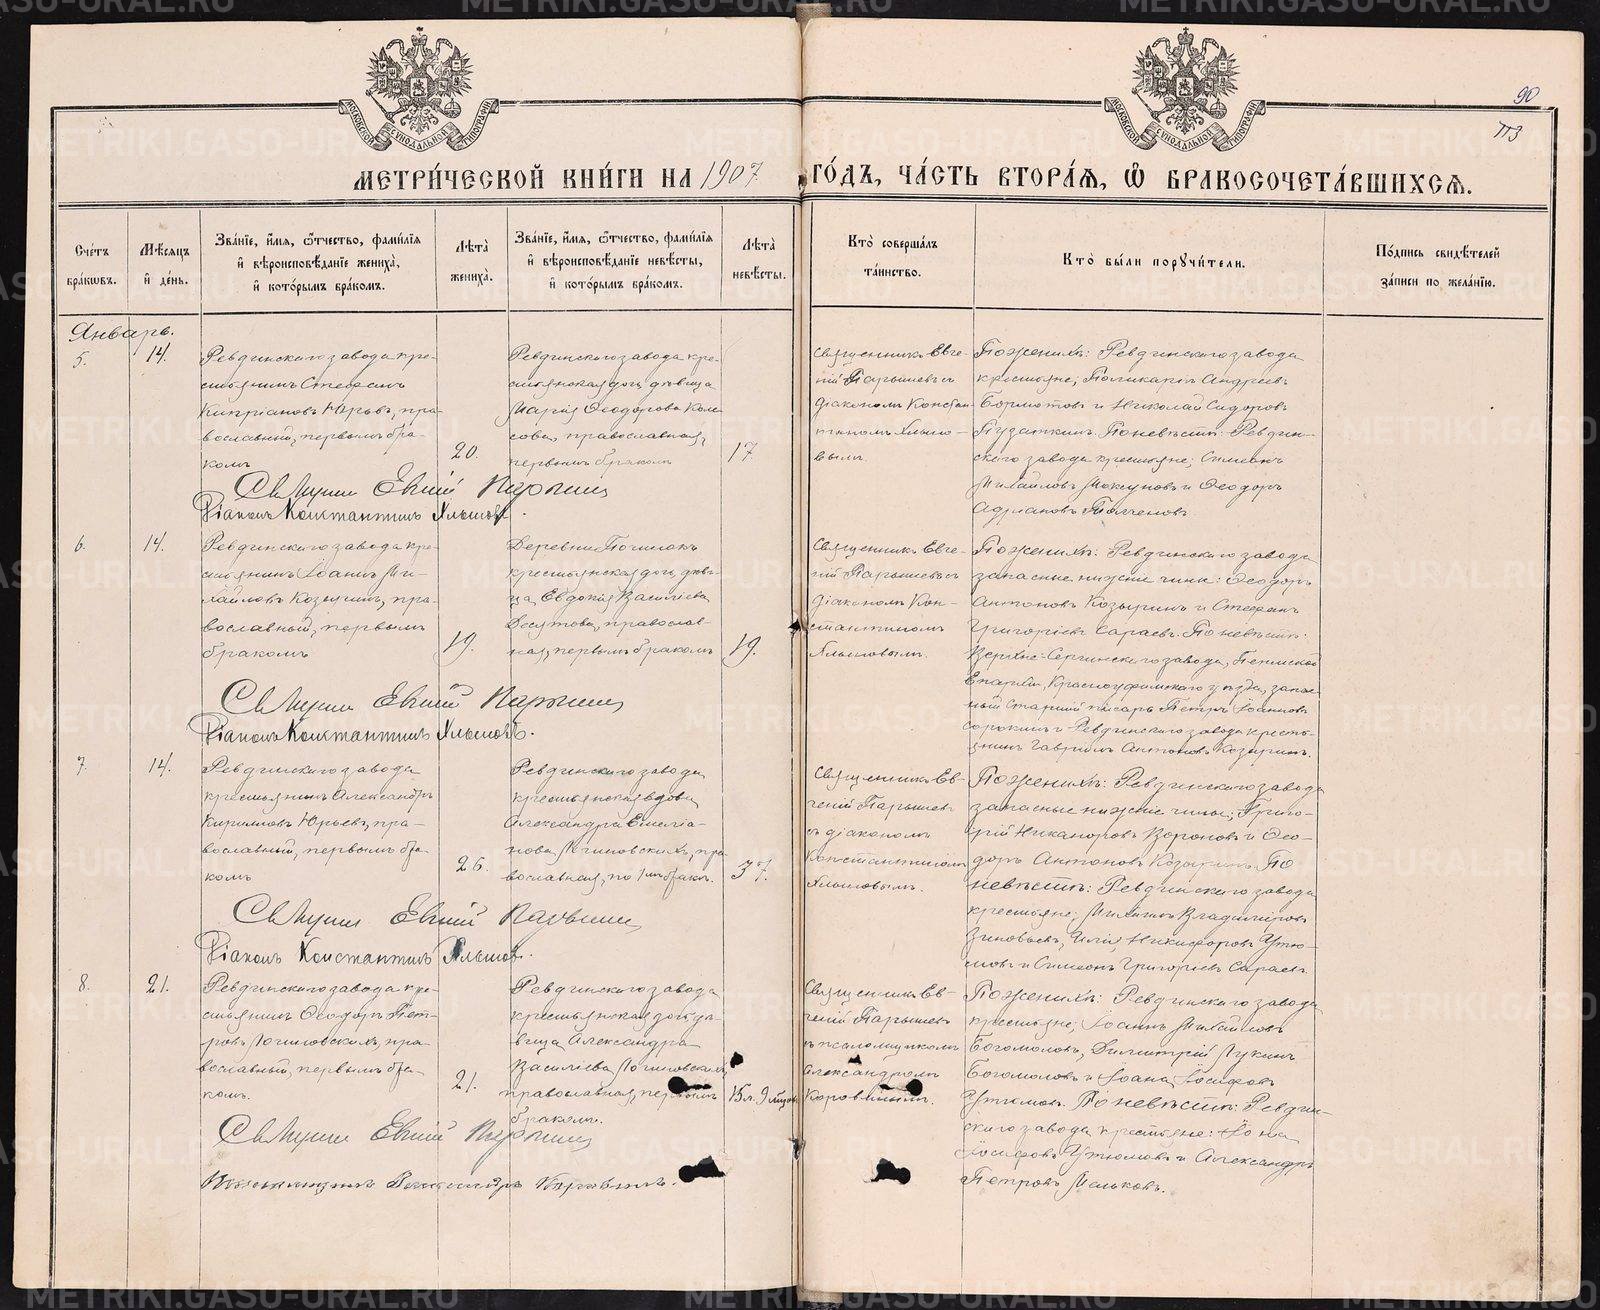 90
МОСКОВСКОЙ СѴНОДАЛЬНОЙ ТИПОГРАФІИ
МОСКОВСКОЙ СѴНОДАЛЬНОЙ ТИПОГРАФІИ
МЕТРИ́ЧЕСКОЙ КНИ́ГИ НА 1907 ГО́ДЪ, ЧА́СТЬ ВТОРА́Ѧ, Ѡ҆ БРАКОСОЧЕТА́ВШИХСѦ.
Сче́тъ бра́кѡвъ.
Мѣ́сѧцъ и҆ де́нь.
Зва́нїе, и҆́мѧ, ѻ҆́тчество, фамі́лїѧ и҆ вѣроисповѣ́данїе жениха̀, и҆ кото́рымъ бра́комъ.
Лѣта̀ жениха̀.
Зва́нїе, и҆́мѧ, ѻ҆́тчество, фамі́лїѧ и҆ вѣроисповѣ́данїе невѣ́сты, и҆ кото́рымъ бра́комъ.
Лѣта̀ невѣ́сты.
Кто̀ соверша́лъ та́инство.
Кто̀ бы́ли порꙋчи́тели.
По́дпись свидѣ́телей за́писи по жела́нїю.
Январь.
5.
14.
Ревдинскаго завода кре-
стьянинъ Стефанъ
Кипріановъ Юрьевъ, пра-
вославный, первымъ бра-
комъ
20.
Ревдинскаго завода кре-
стьянская дочь, дѣвица
Марія Ѳеодорова Коло-
сова, православная,
первымъ бракомъ
17.
Священникъ Евге-
ній Парышевъ съ
діакономъ Констан-
тиномъ Хлыно-
вымъ.
По женихѣ: Ревдинскаго завода
крестьяне; Поликарпъ Андреевъ
Бормотовъ и Николай Сидоровъ
Пузаткинъ. По невѣстѣ: Ревдин-
скаго завода крестьяне; Симеонъ
Михайловъ и Ѳеодоръ
Адріановъ
Евгеній Парышевъ
Діаконъ Константинъ Хлыновъ.
6.
14.
Ревдинскаго завода кре-
стьянинъ Іоаннъ Ми-
хайловъ Козыринъ, пра-
вославный, первымъ
бракомъ
19.
Деревни Починокъ
крестьянская дочь, дѣви-
ца Евдокія Василіева
Десятова, православ-
ная, первымъ бракомъ
19.
Священникъ Евге-
ній Парышевъ съ
діакономъ Кон-
стантиномъ
Хлыновымъ.
По женихѣ: Ревдинскаго завода
запасные нижніе чины: Ѳеодоръ
Антоновъ Козыринъ и Стефанъ
Григоріевъ Сараевъ. По невѣстѣ:
Верхне-Сергинскаго завода, Пермской
Епархіи, Красноуфимскаго уѣзда, запас-
ный старшій писарь Петръ Іоанновъ
Сорокинъ и Ревдинскаго завода кресть-
янинъ Гавріилъ Антоновъ Козыринъ.
Евгеній Парышевъ
Діаконъ Константинъ Хлыновъ.
7.
14.
Ревдинскаго завода
крестьянинъ Александръ
Кирилловъ Юрьевъ, пра-
вославный, первымъ бра-
комъ
26.
Ревдинскаго завода
крестьянская вдова
Александра Емеліа-
нова Логиновскихъ, пра-
вославная, по 1мъ бракѣ.
37.
Священникъ Ев-
геній Парышевъ
съ діакономъ
Константиномъ
Хлыновымъ.
По женихѣ: Ревдинскаго завода
запасные нижніе чины; Григо-
рій Никаноровъ Вороновъ и Ѳео-
доръ Антоновъ Козыринъ. По
невѣстѣ: Ревдинскаго завода
крестьяне; Михаилъ Владиміровъ
Зиновьевъ, Илія Никифоровъ Утю-
мовъ и Симеонъ Григоріевъ Сараевъ.
Евгеній Парышевъ
Діаконъ Константинъ Хлыновъ.
8.
21.
Ревдинскаго завода кре-
стьянинъ Ѳеодоръ Пет-
ровъ Логиновскихъ, пра-
вославный, первымъ бра-
комъ.
21.
Ревдинскаго завода
крестьянская дочь, дѣ-
вица Александра
Василіева Логиновскихъ,
православная, первымъ
бракомъ.
15 л. 9 мѣсяц.
Священникъ Ев-
геній Парышевъ
съ псаломщикомъ
Александромъ
Коровинымъ.
По женихѣ: Ревдинскаго завода
крестьяне; Іоаннъ Михайловъ
Богомоловъ, Димитрій Лукинъ
Богомоловъ и Іоаннъ Іосифовъ
Утюмовъ. По невѣстѣ: Ревдин-
скаго завода крестьяне: Іона
Іосифовъ Утюмовъ и Александръ
Петровъ Мальковъ.
Евгеній Парышевъ
Псаломщикъ Александръ Коровинъ.
METRIKI.GASO-URAL.RU